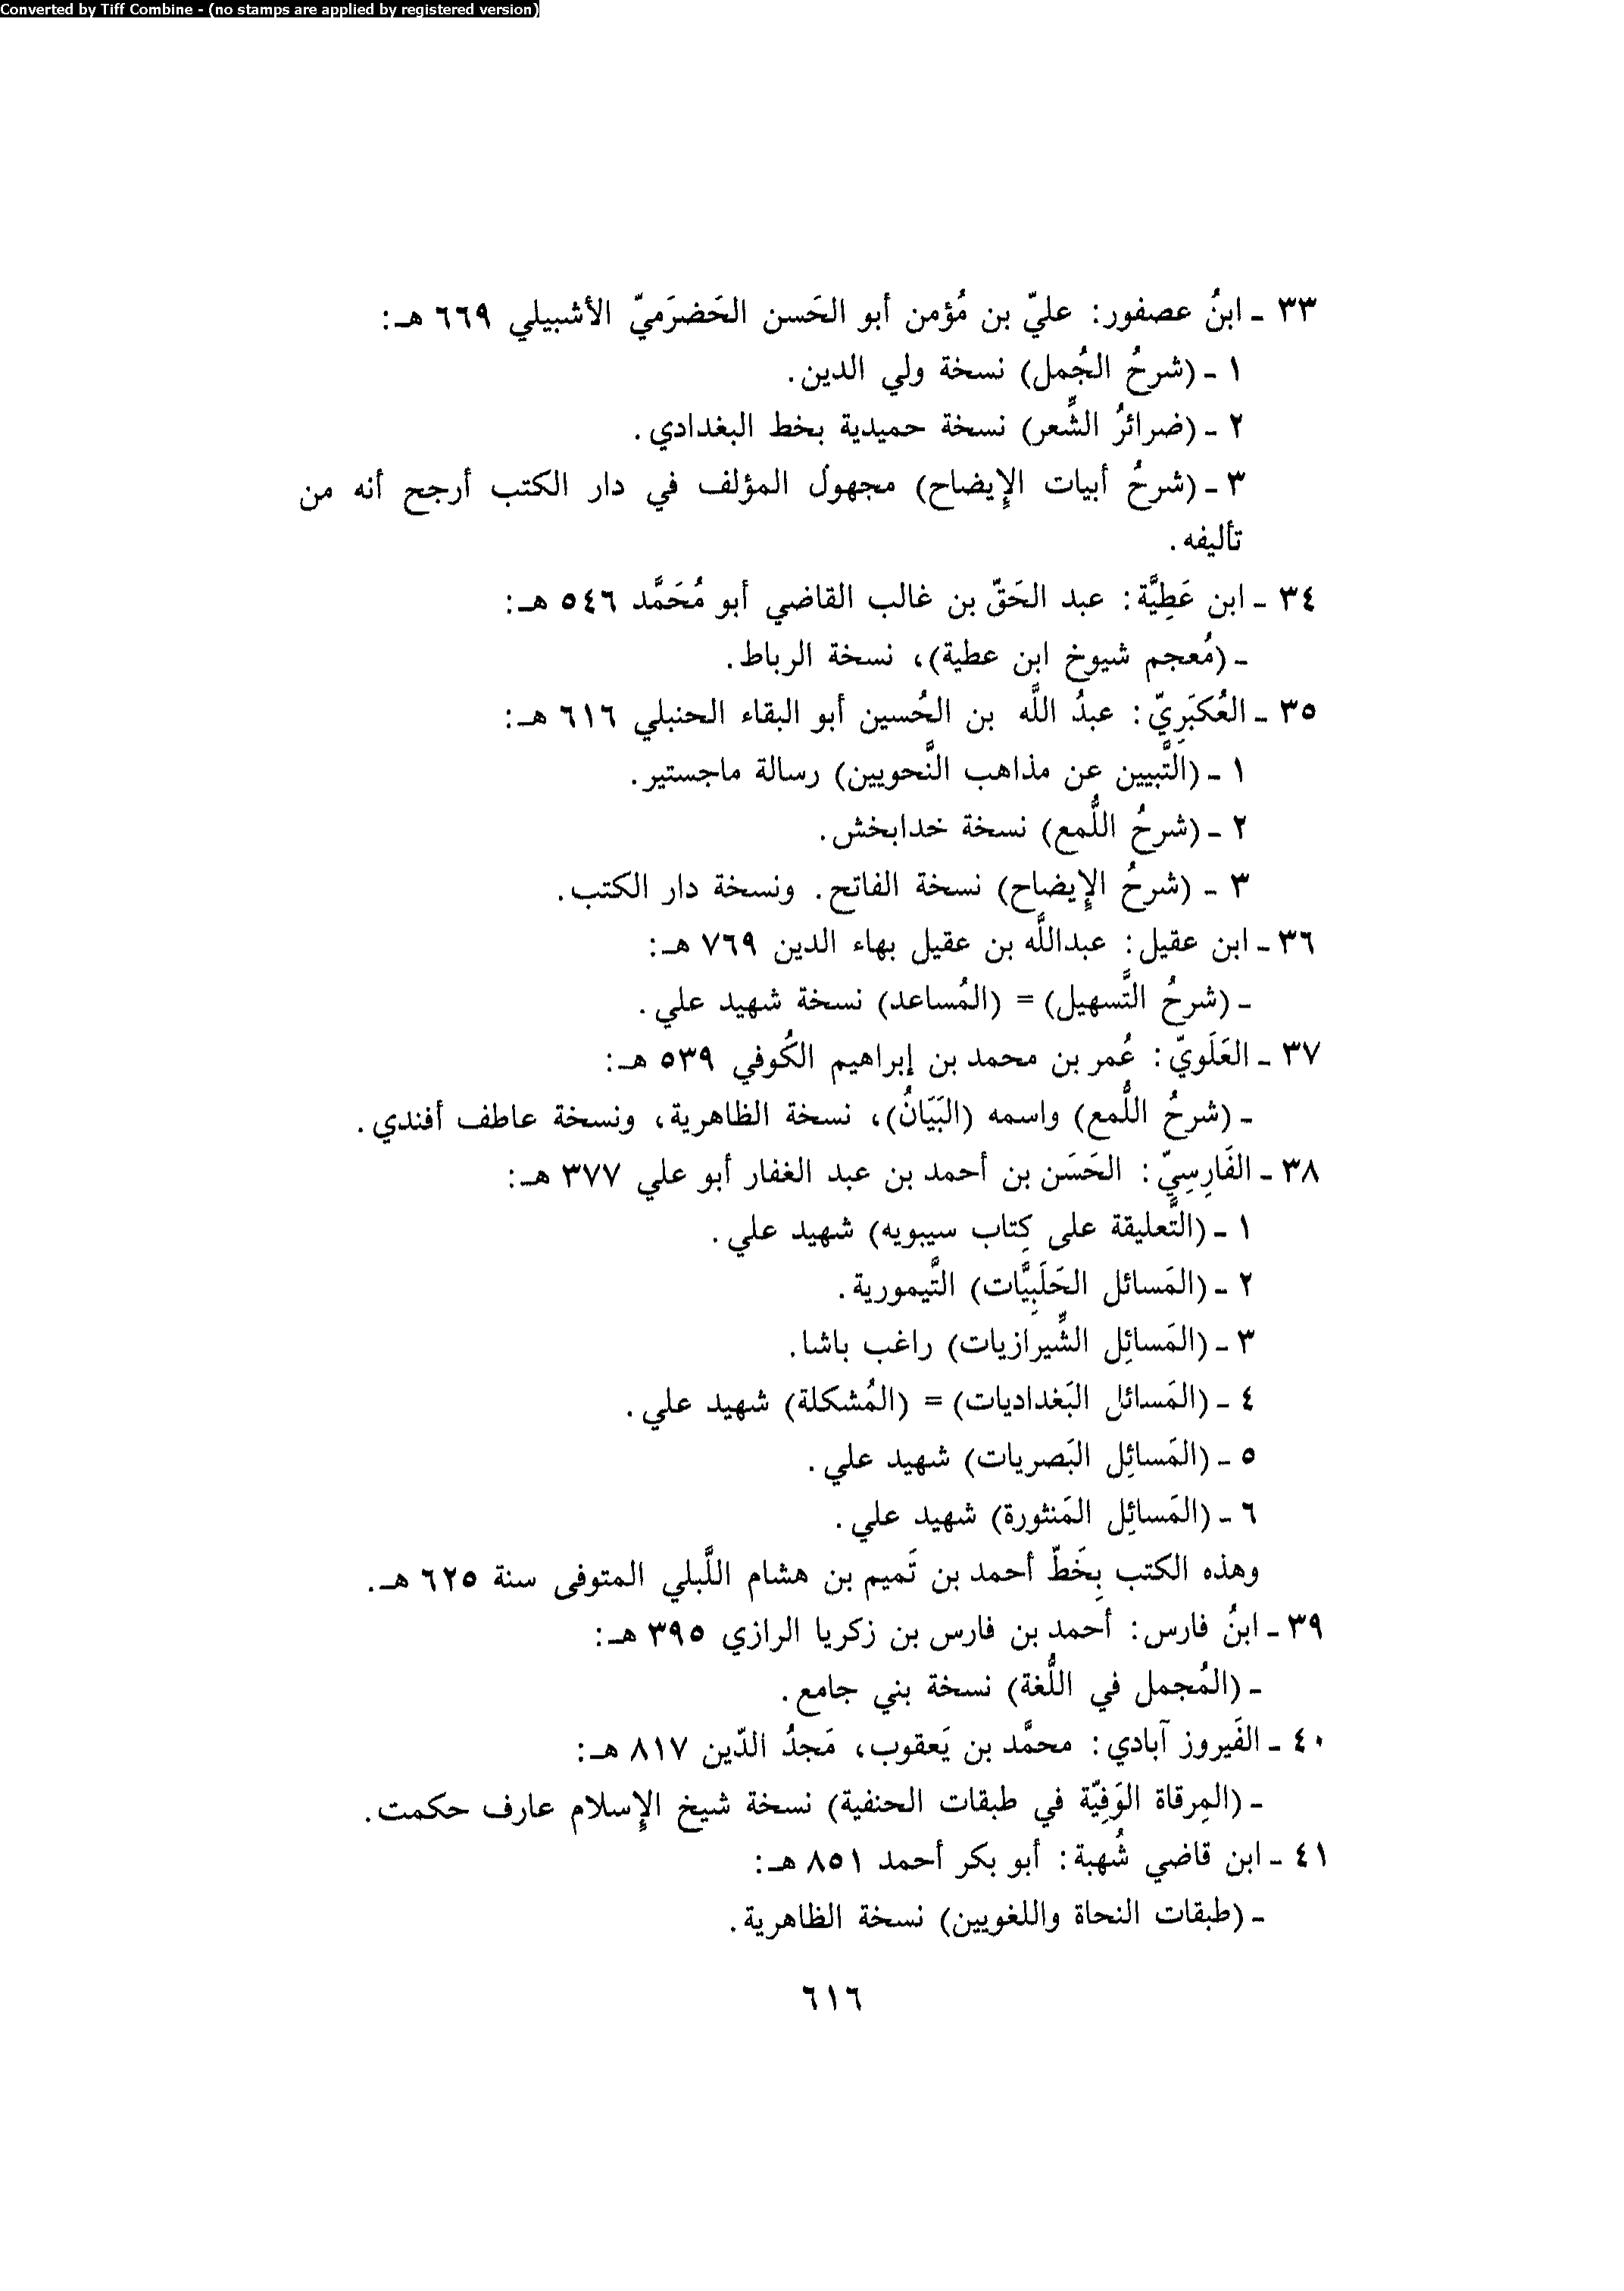 Converted by Tiff Combine - (no stamps are applied by registered version)
٣٣ ـ ابنُ عصفور: عليّ بن مُؤمن أبو الحَسن الحَضرَميّ الأشبيلي ٦٦٩ هـ:
١ ـ (شرحُ الجُمل) نسخة ولي الدين.
٢ ـ (ضرائرُ الشِّعر) نسخة حميدية بخط البغدادي.
٣ ـ (شرحُ أبيات الإيضاح) مجهول المؤلف في دار الكتب أرجح أنه من
تأليفه.
٣٤ ـ ابن عَطِيَّة: عبد الحَقّ بن غالب القاضي أبو مُحَمَّد ٥٤٦ هـ:
ـ (مُعجم شيوخ ابن عطية)، نسخة الرباط.
٣٥ ـ العُكبَرِيّ: عبدُ اللَّه بن الحُسين أبو البقاء الحنبلي ٦١٦ هـ:
١ ـ (التَّبيين عن مذاهب النَّحويين) رسالة ماجستير.
٢ ـ (شرحُ اللُّمع) نسخة خدابخش.
٣ ـ (شرحُ الإيضاح) نسخة الفاتح. ونسخة دار الكتب.
٣٦ ـ ابن عقيل: عبداللَّه بن عقيل بهاء الدين ٧٦٩ هـ:
ـ (شرحُ التَّسهيل) = (المُساعد) نسخة شهيد علي.
٣٧ ـ العَلَويّ: عُمر بن محمد بن إبراهيم الكُوفي ٥٣٩ هـ:
ـ (شرحُ اللُّمع) واسمه (البَيَانُ)، نسخة الظاهرية، ونسخة عاطف أفندي.
٣٨ ـ الفَارِسِيّ: الحَسَن بن أحمد بن عبد الغفار أبو علي ٣٧٧ هـ:
١ ـ (التَّعليقة على كِتاب سيبويه) شهيد علي.
٢ ـ (المَسائل الحَلَبِيَّات) التَّيمورية.
٣ ـ (المَسائِل الشِّيرازيات) راغب باشا.
٤ ـ (المَسائل البَغداديات) = (المُشكلة) شهيد علي.
٥ ـ (المَسائِل البَصريات) شهيد علي.
٦ ـ (المَسائِل المَنثورة) شهيد علي.
وهذه الكتب بِخَطّ أحمد بن تَميم بن هشام اللَّبلي المتوفى سنة ٦٢٥ هـ.
٣٩ ـ ابنُ فارس: أحمد بن فارس بن زكريا الرازي ٣٩٥ هـ:
ـ (المُجمل في اللُّغة) نسخة بني جامع.
٤٠ ـ الفَيروز آبادي: محمَّد بن يَعقوب، مَجدُ الدّين ٨١٧ هـ:
ـ (المِرقاة الوَفِيّة في طبقات الحنفية) نسخة شيخ الإسلام عارف حكمت.
٤١ ـ ابن قاضي شُهبة: أبو بكر أحمد ٨٥١ هـ:
ـ (طبقات النحاة واللغويين) نسخة الظاهرية.
٦١٦